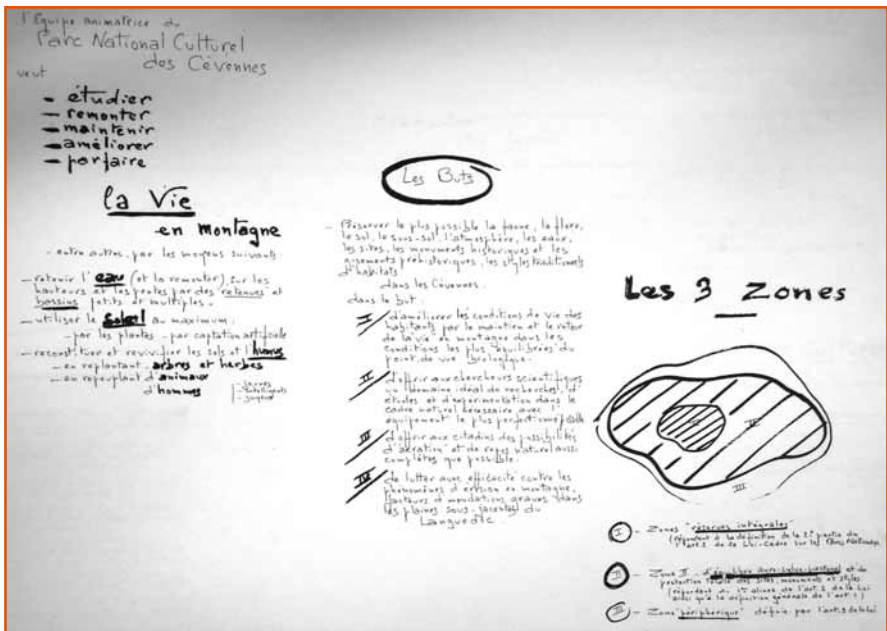 l'Equipe animatrice du
Parc National Culturel
des Cévennes
veut
- étudier
- remonter
- maintenir
- améliorer
- parfaire
la Vie
en montagne
- entre autres, par les moyens suivants:
- retenir l'eau (et la remonter), sur les
hauteurs et les pentes par des retenues et
bassins petits et multiples.
- utiliser le Soleil au maximum:
- par les plantes - par captation artificielle
- reconstituer et revivifier les sols et l'humus
- en replantant arbres et herbes
- en repeuplant d'animaux
d'hommes
- jeunes
- intelligents
- joyeux
Les Buts
- Préserver le plus possible la faune, la flore,
le sol, le sous-sol, l'atmosphère, les eaux,
les sites, les monuments historiques et les
gisements préhistoriques, les styles traditionnels
d'habitats
dans les Cévennes.
dans le but:
I d'améliorer les conditions de vie des
habitants par le maintien et le retour
de la vie en montagne dans les
conditions les plus équilibrées du
point de vue biologique.
II d'offrir aux chercheurs scientifiques
un domaine idéal de recherches, d'
études et d'expérimentation dans le
cadre naturel nécessaire avec l'
équipement le plus perfectionné possible
III d'offrir aux citadins des possibilités
d'aération et de repos naturel aussi
complètes que possible.
IV de lutter avec efficacité contre les
phénomènes d'érosion en montagne,
facteurs d'inondations graves dans
les plaines sous-jacentes du
Languedoc.
Les 3 Zones
I
II
III
I - Zones "réserves intégrales"
(répondant à la définition de la 2e partie de
l'art. 2 de la Loi-Cadre sur les Parcs Nationaux
II - Zone II - d'équilibre agro-sylvo-pastoral et de
protection totale des sites, monuments et styles
(répondant au 1er alinéa de l'art. 2 de la Loi
ainsi qu'à la définition générale de l'art. 1)
III - Zone "périphérique" définie par l'art. 3 de la loi